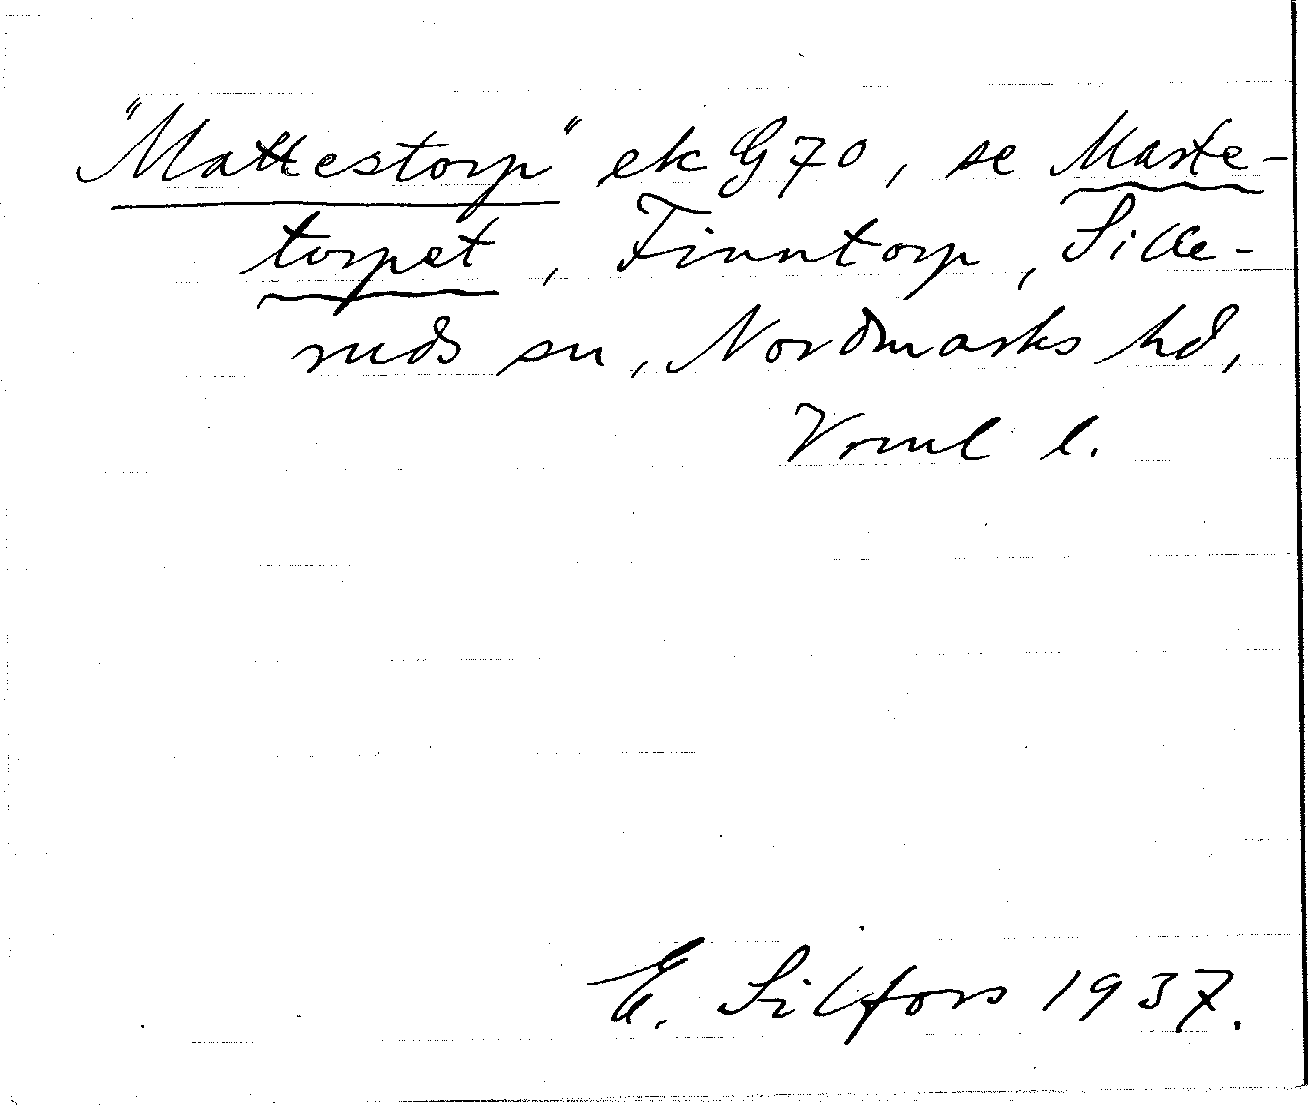 "Mattestorp" ek G 70, se Marte-
torpet, Finntorp, Sille-
ruds sn, Nordmarks hd,
Vrml l.
E. Silfors 1937.